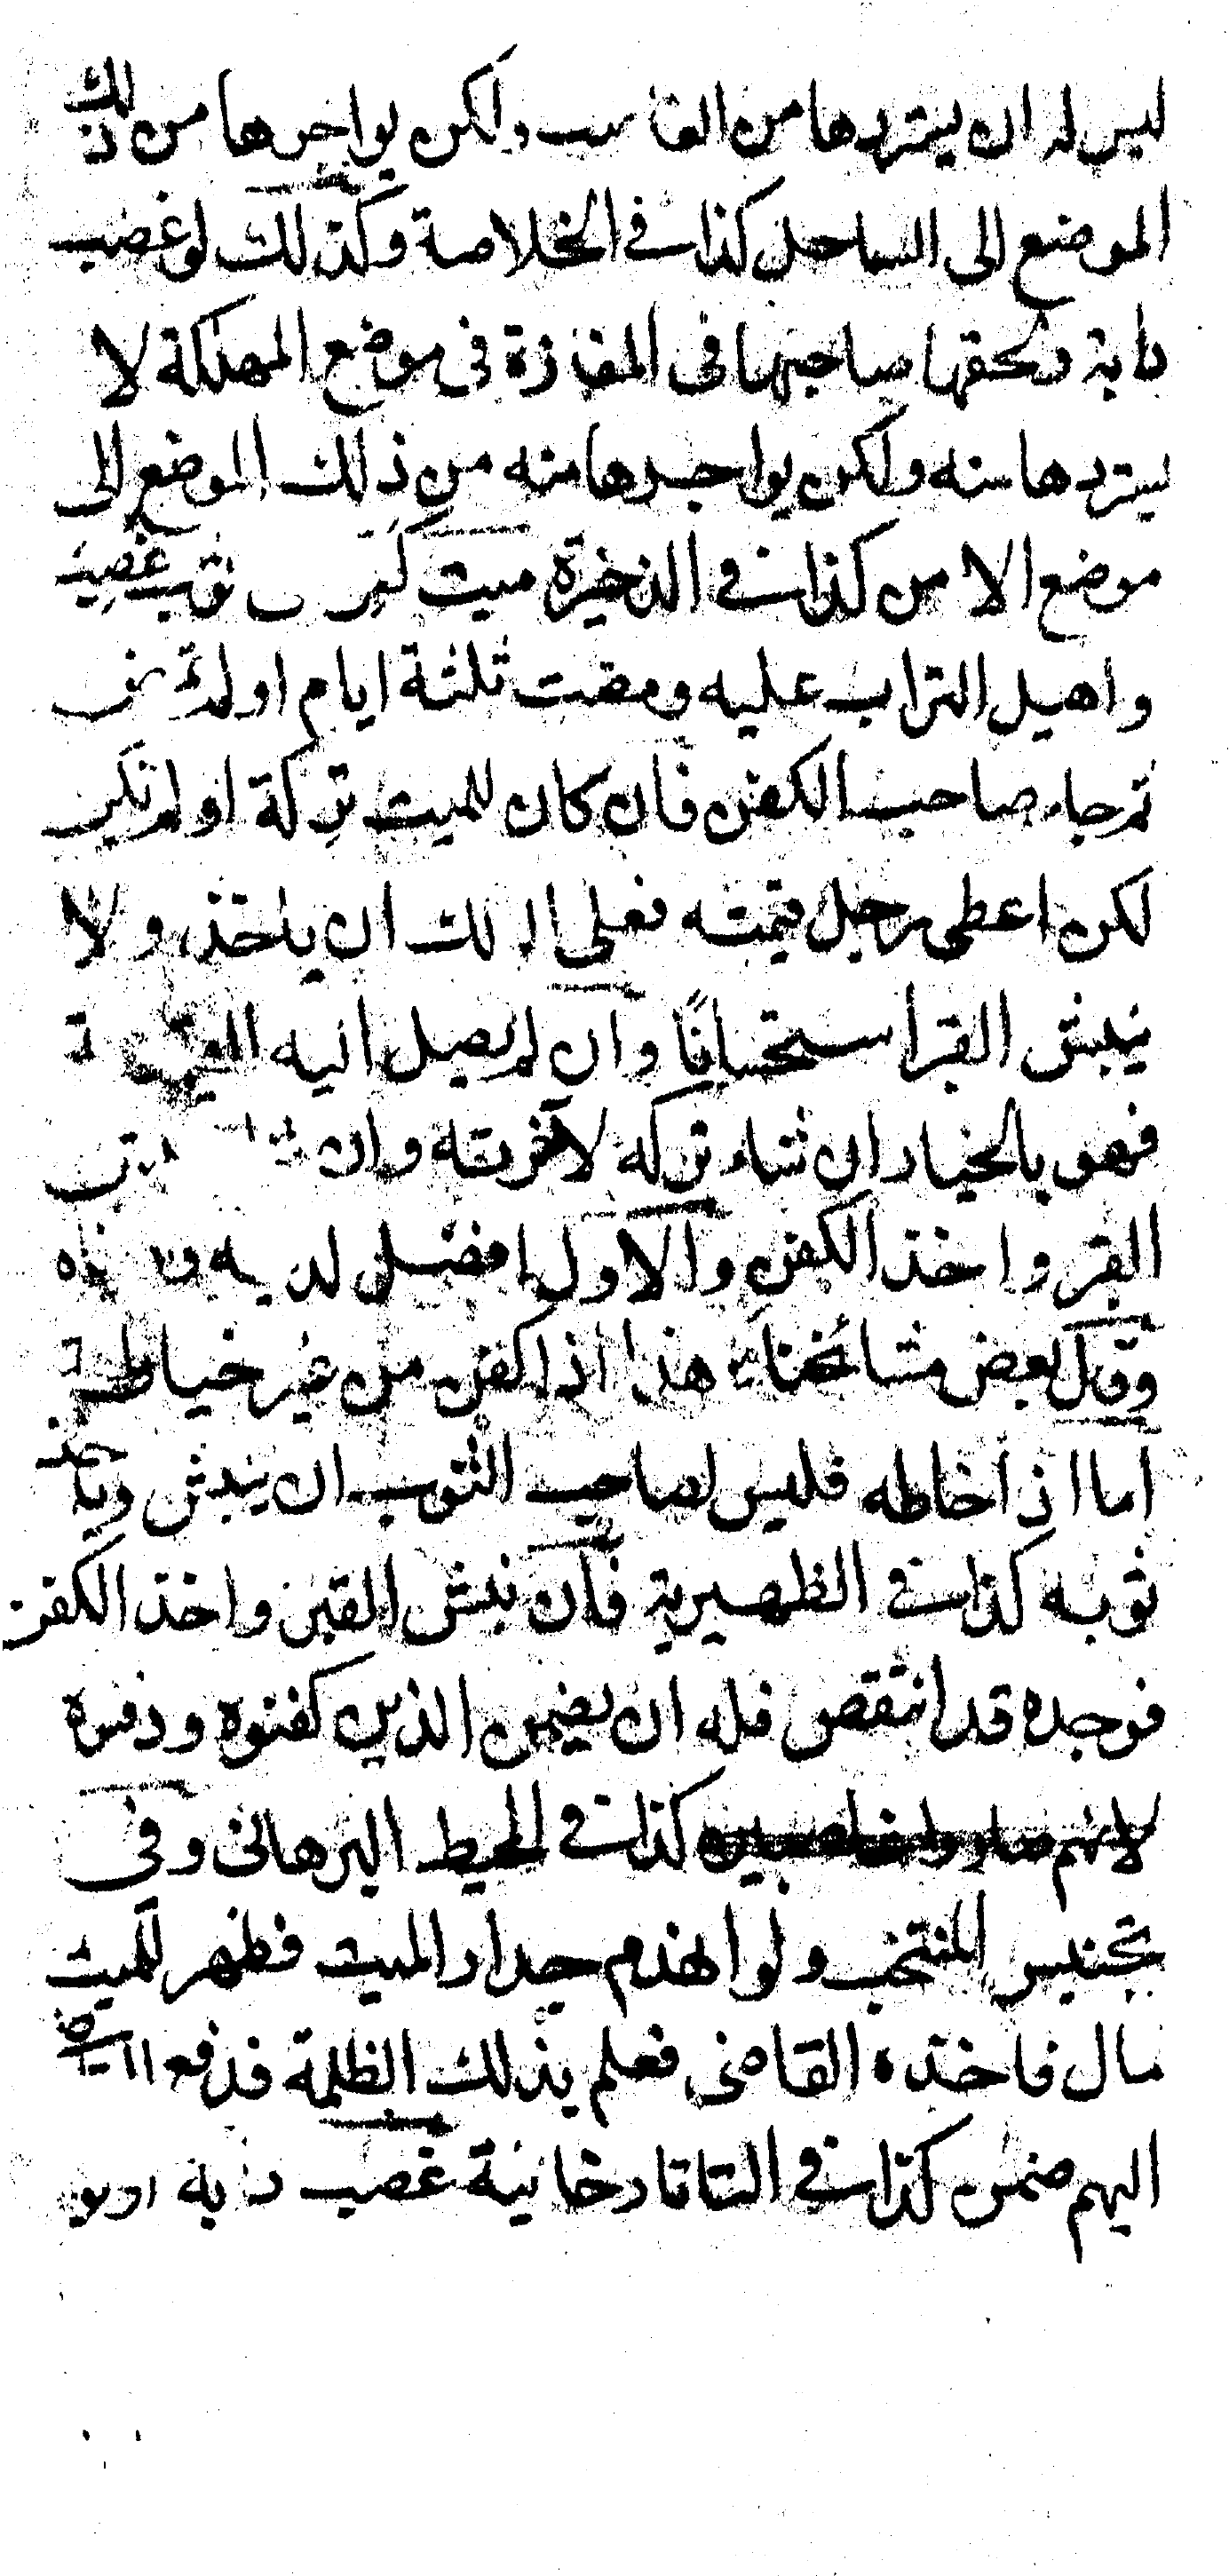 ليس له ان يستردها من الغاصب ولكن يواجرها من ذلك
الموضع الى الساحل كذا فى الخلاصة وكذلك لو غصب
دابة ولحقها صاحبها فى المفازة فى موضع المهلكة لا
يستردها منه ولكن يواجرها منه من ذلك الموضع الى
موضع الامن كذا فى الذخيرة ميت كفن ثوب غصب
واهيل التراب عليه ومضت ثلثة ايام او لم
ثم جاء صاحب الكفن فان كان للميت تركة او لم تكن
لكن اعطى رجل قيمته فعلى المالك ان ياخذ ولا
ينبش القبر استحسانا وان لم يصل اليه القيمة
فهو بالخيار ان شاء تركه لآخرته وان
القبر واخذ الكفن والاول افضل لدينه
وقال بعض مشائخنا هذا اذا كفن من غير خياطة
اما اذا خاطه فليس لصاحب الثوب ان ينبش وياخذ
ثوبه كذا فى الظهيرية فان نبش القبر واخذ الكفن
فوجده قد انتقص فله ان يضمن الذين كفنوه ودفنوه
لانهم صاروا غاصبين كذا فى المحيط البرهانى وفى
تجنيس المنتخب ولو انهدم جدار الميت فظهر للميت
مال فاخذه القاضى فعلم بذلك الظلمة فدفع القاضى
اليهم ضمن كذا فى التاتارخانية غصب دابة